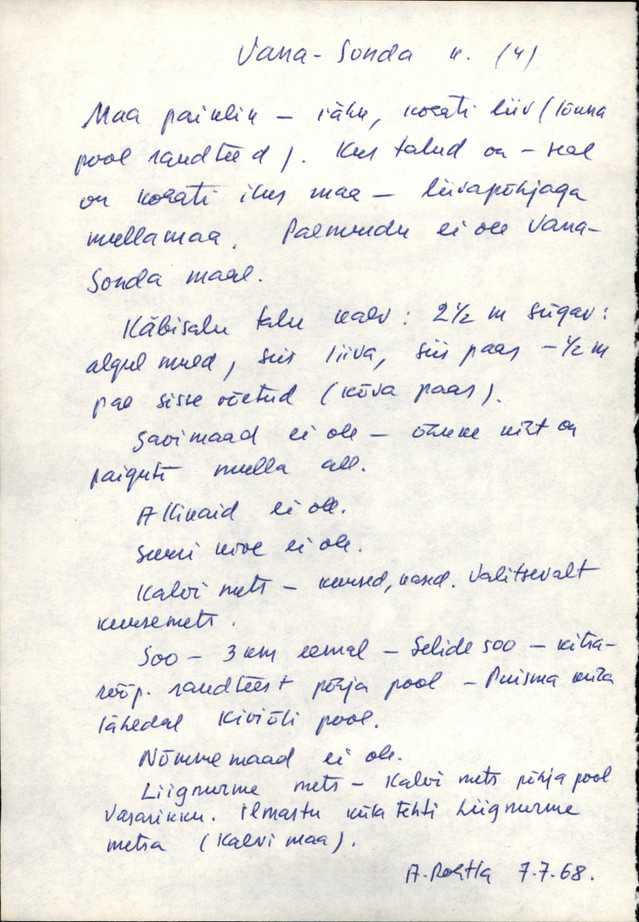 Vana-Sonda k. (4)
Maa paiklik – rähk, kohati liiv (lõuna
pool raudteed). Kus talud on – seal
on kohati ilus maa – liivapõhjaga
mullamaa. Paemurdu ei ole Vana-
Sonda maal.
Käbisalu talu kaev: 2½ m sügav:
algul muld, siis liiva, siis paas – ½ m
pae sisse võetud (kõva paas).
Savimaad ei ole – õhuke kiht on
paiguti mulla all.
Allikaid ei ole.
Suuri kive ei ole.
Kalvi mets – kuused, kased. Valitsevalt
kuusemets.
Soo – 3 km eemal – Selide soo – kitsa-
rööp. raudteest põhja pool – Puisma küla
lähedal Kiviõli pool.
Nõmmemaad ei ole.
Liignurme mets – Kalvi mets põhja pool
Vasarikku. Ilmastu küla tehti Liignurme
metsa (Kalvi maa).
7.7.68.